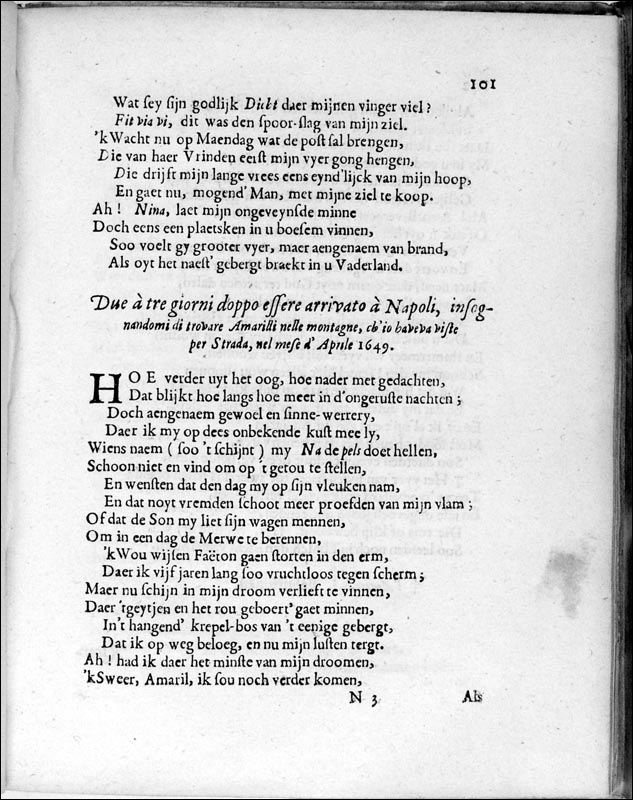 101
Wat ſey ſijn godlijk Dicht daer mijnen vinger viel?
Fit via vi, dit was den ſpoor-ſlag van mijn ziel.
'kWacht nu op Maendag wat de poſt ſal brengen,
Die van haer Vrinden eerſt mijn vyer gong hengen,
Die drijft mijn lange vrees eens eynd'lijck van mijn hoop,
En gaet nu, mogend' Man, met mijne ziel te koop.
Ah! Nina, laet mijn ongeveynſde minne
Doch eens een plaetsken in u boeſem vinnen,
Soo voelt gy grooter vyer, maer aengenaem van brand,
Als oyt het naeſt' gebergt braekt in u Vaderland.
Due à tre giorni doppo eſſere arrivato à Napoli, inſog-
nandomi di trovare Amarilli nelle montagne, ch'io haveva viſte
per Strada, nel meſe d'Aprile 1649.
HOE verder uyt het oog, hoe nader met gedachten,
Dat blijkt hoe langs hoe meer in d'ongeruſte nachten;
Doch aengenaem gewoel en ſinne-werrery,
Daer ik my op dees onbekende kuſt mee ly,
Wiens naem (ſoo 't ſchijnt) my Na de pels doet hellen,
Schoon niet en vind om op 't getou te ſtellen,
En wenſten dat den dag my op ſijn vleuken nam,
En dat noyt vremden ſchoot meer proefden van mijn vlam;
Of dat de Son my liet ſijn wagen mennen,
Om in een dag de Merwe te berennen,
'kWou wijſen Faëton gaen ſtorten in den erm,
Daer ik vijf jaren lang ſoo vruchtloos tegen ſcherm;
Maer nu ſchijn in mijn droom verlieft te vinnen,
Daer 'tgeytjen en het rou geboert' gaet minnen,
In't hangend' krepel-bos van 't eenige gebergt,
Dat ik op weg beloeg, en nu mijn luſten tergt.
Ah! had ik daer het minſte van mijn droomen,
'kSweer, Amaril, ik ſou noch verder komen,
N 3 Als